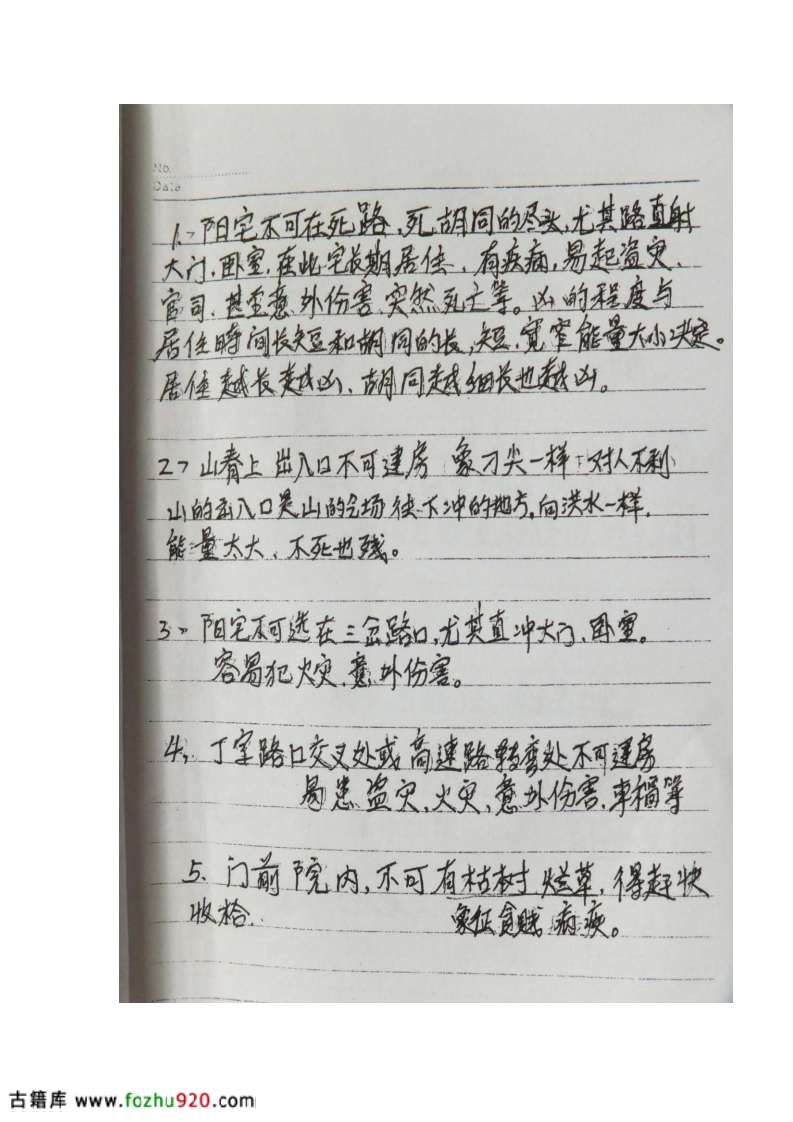 No.
Date
1、阳宅不可在死路，死胡同的尽头，尤其路直射
大门，卧室，在此宅长期居住，有疾病，易起盗灾、
官司，甚至意外伤害，突然死亡等。凶的程度与
居住时间长短和胡同的长，短，宽窄能量大小决定。
居住越长越凶、胡同越细长也越凶。
2、山脊上出入口不可建房 象刀尖一样 对人不利
山的出入口是山的气场往下冲的地方，向洪水一样，
能量太大、不死也残。
3、阳宅不可选在三岔路口，尤其直冲大门、卧室。
容易犯火灾，意外伤害。
4、丁字路口交叉处或高速路转弯处不可建房
易患盗灾，火灾，意外伤害，車禍等
5. 门前院内，不可有枯树烂草，得赶快
收拾. 象征貪贱 病疾。
古籍库 www.fozhu920.com